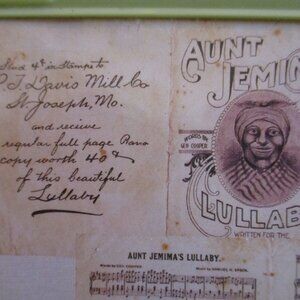 Send 4¢ in Stamps to
R. T. Davis Mill Co
St. Joseph, Mo.
and receive
regular full page Piano
copy worth 40¢
of this beautiful
Lullaby
AUNT
JEMIM
WORDS BY
GEO COOPER
LULLAB
WRITTEN FOR THE
AUNT JEMIMA'S LULLABY.
Words by GEO. COOPER.
Music by SAMUEL H. SPECK.